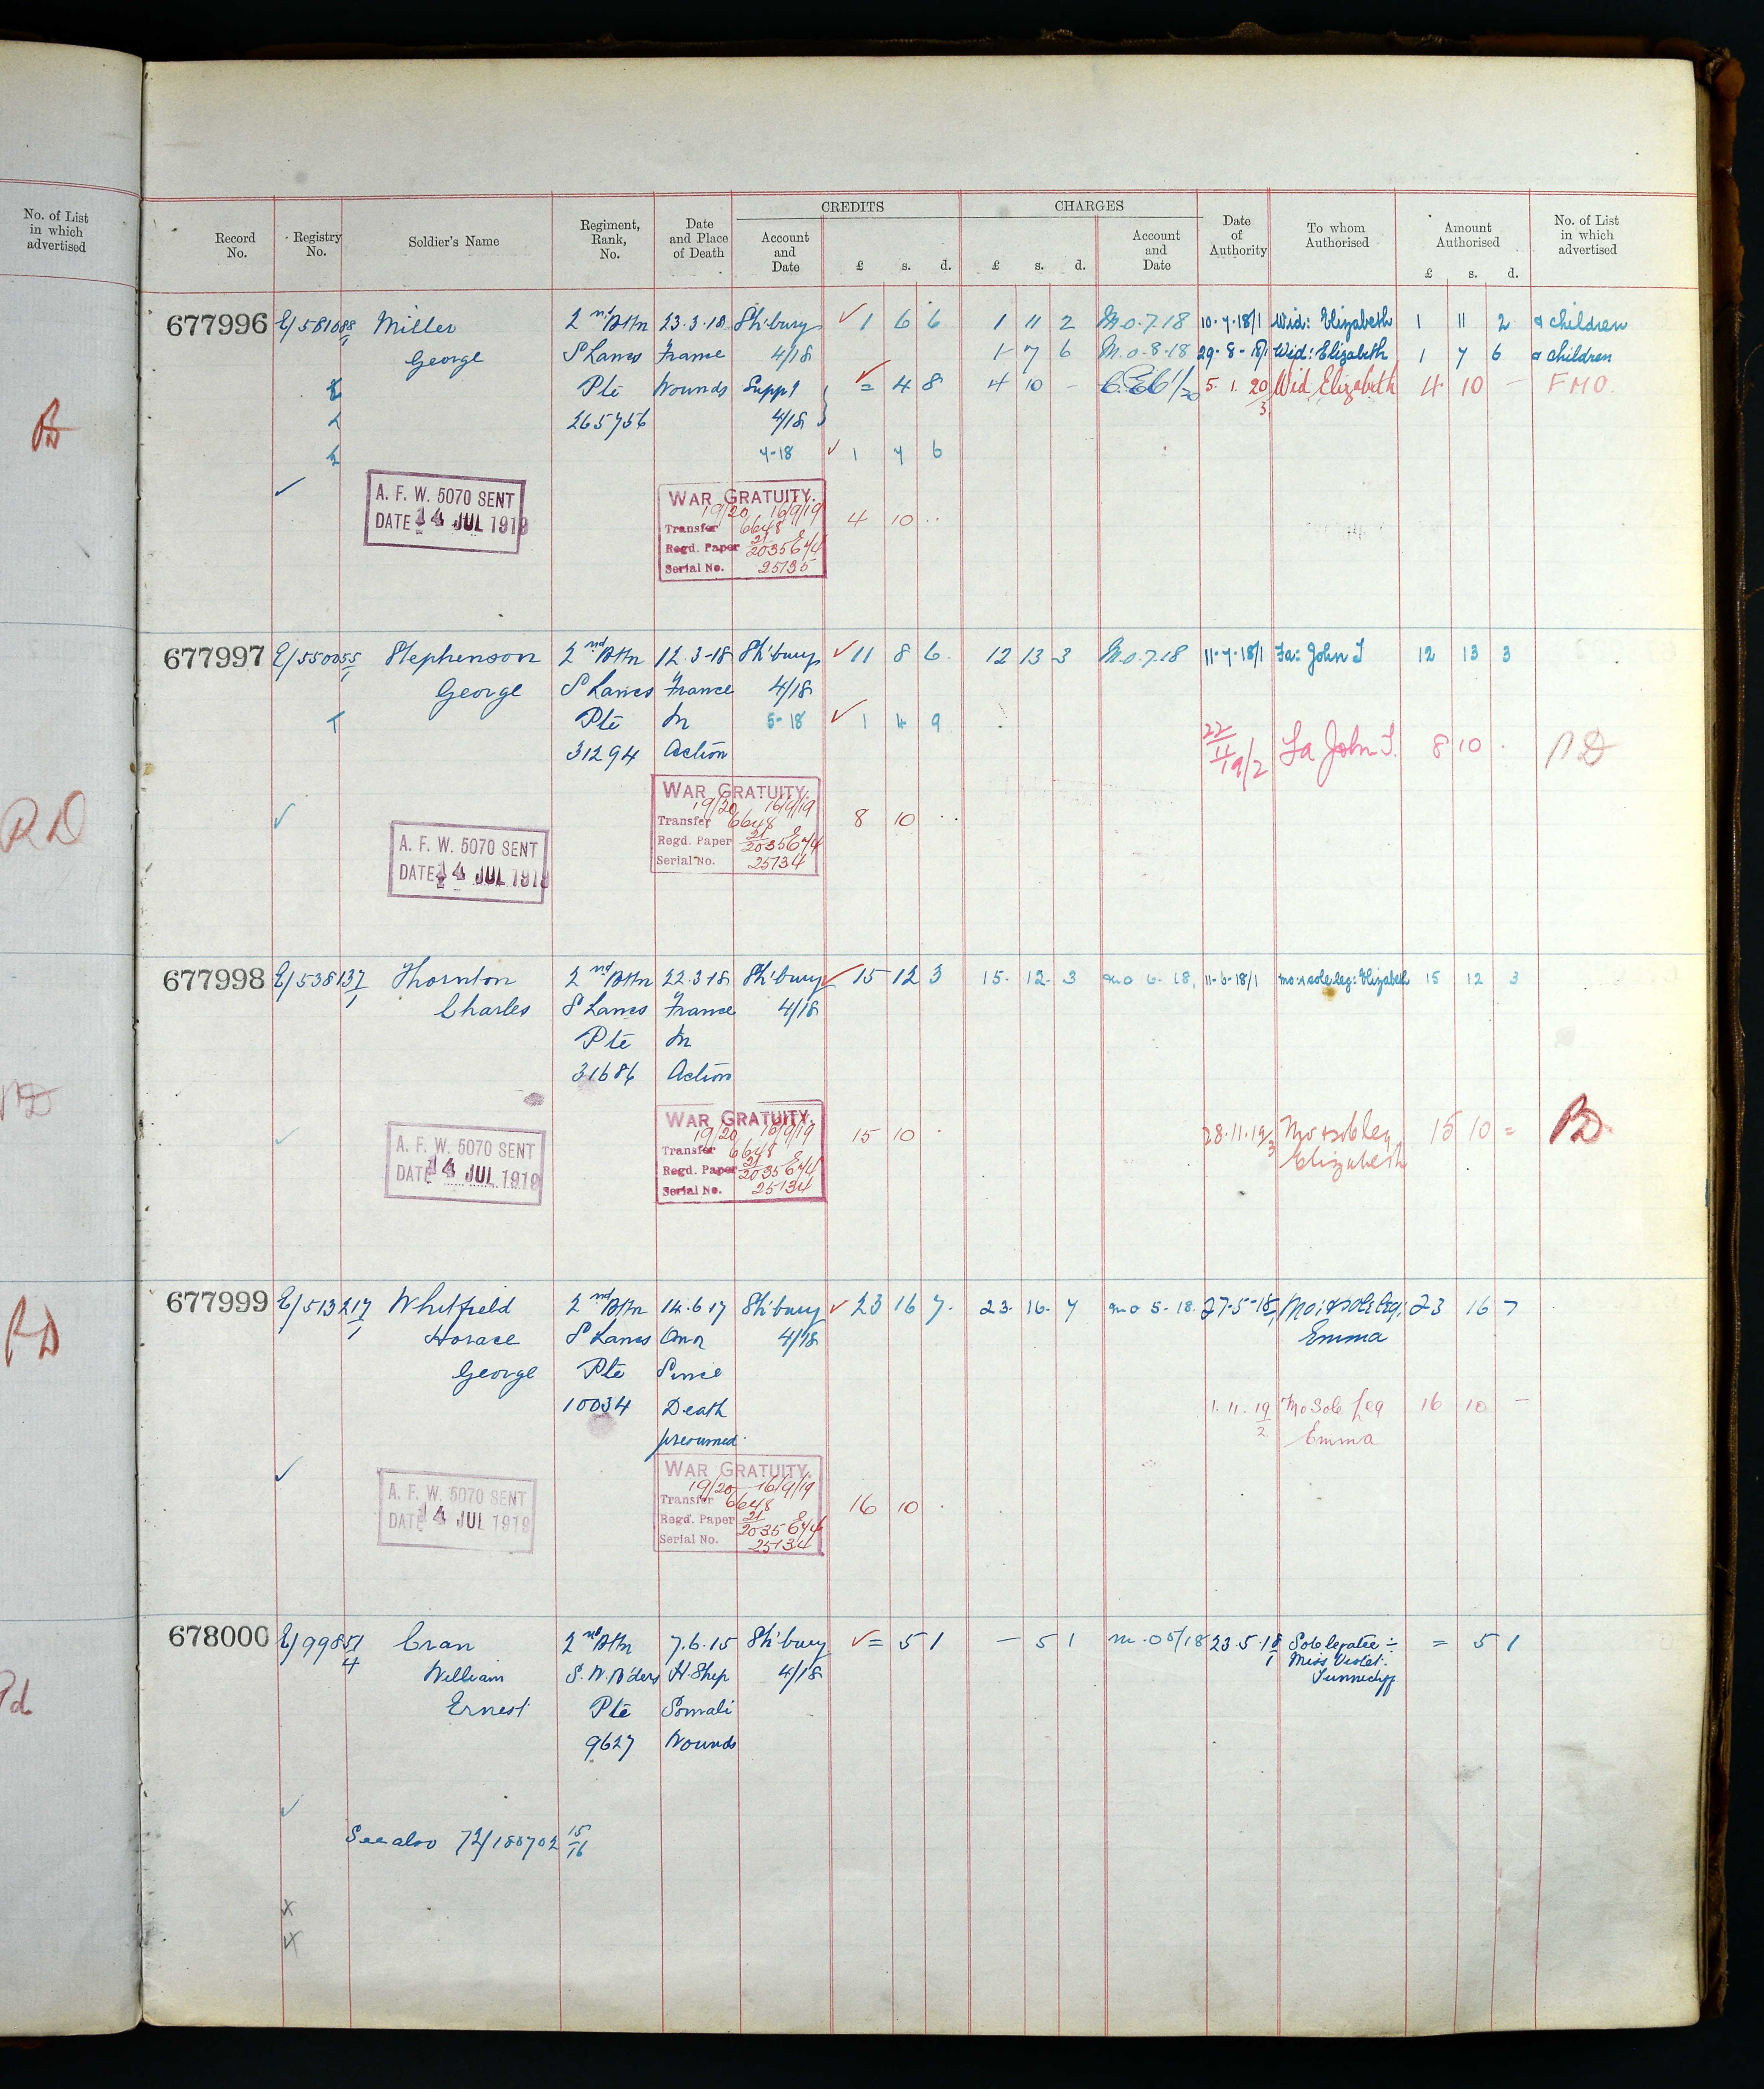 No. of List
in which
advertised
RD
Pd
CREDITS CHARGES
Record No. Registry No. Soldier's Name Regiment, Rank, No. Date and Place of Death Account and Date £ s. d. £ s. d. Account and Date Date of Authority To whom Authorised Amount Authorised £ s. d. No. of List in which advertised
677996 E/581088/1 Miller 2nd Bttn 23.3.18 Sh'bury ✓ 1 6 6 1 11 2 M.O.7.18 10.7.18/1 Wid: Elizabeth 1 11 2 & children
George S Lancs France 4/18 1 7 6 M.O.8.18 29.8.18/1 Wid: Elizabeth 1 7 6 & children
Pte Wounds Suppl ✓ = 4 8 4 10 - 5.1.20/3 Wid Elizabeth 4 10 - FMO.
265756 4/18
7-18 ✓ 1 7 6
A. F. W. 5070 SENT
DATE 14 JUL 1919
WAR GRATUITY.
19/20 16/9/19 4 10 ..
Transfer 6648
Regd. Paper 21/2035 E/4
Serial No. 25135
677997 E/55005 5/1 Stephenson 2nd Bttn 12.3-18 Sh'bury ✓ 11 8 6 12 13 3 M.O.7.18 11.7.18/1 Fa: John T 12 13 3
George S Lancs France 4/18
Pte In 5-18 ✓ 1 4 9
31294 Action 22/11/19/2 Fa John T. 8 10 .
WAR GRATUITY.
19/20 16/9/19 8 10 ..
Transfer 6648
Regd. Paper 21/2035 E/4
Serial No. 25134
A. F. W. 5070 SENT
DATE 14 JUL 1919
677998 E/538137/1 Thornton 2nd Bttn 22.3.18 Sh'bury ✓ 15 12 3 15. 12. 3 mo 6.18. 11-6-18/1 mo: & sole leg: Elizabeth 15 12 3
Charles S Lancs France 4/18
Pte In
31686 Action
A. F. W. 5070 SENT
DATE 14 JUL 1919
WAR GRATUITY.
19/20 16/9/19 15 10 . 28.11.19/3 Mo & sole leg Elizabeth 15 10 =
Transfer 6648
Regd. Paper 21/2035 E/4
Serial No. 25134
677999 E/513217/1 Whitfield 2nd Bttn 14.6.17 Sh'bury ✓ 23 16 7. 23. 16. 7 mo 5-18. 27-5-18/1 Mo: & sole leg: 23 16 7
Horace S Lancs On or 4/18 Emma
George Pte Since
10034 Death 1.11.19/2 Mo Sole Leg 16 10 -
presumed. Emma
A. F. W. 5070 SENT
DATE 14 JUL 1919
WAR GRATUITY.
19/20 16/9/19 16 10 .
Transfer 6648
Regd. Paper 21/2035 E/4
Serial No. 25134
678000 E/99851/4 Cran 2nd Bttn 7.6.15 Sh'bury ✓ = 5 1 - 5 1 m.o 5/18 23.5.18/1 Sole legatee:- = 5 1
William S.W.B'ders H. Ship 4/18 Miss Violet
Ernest Pte Somali Tunnicliff
9627 Wounds
See also 72/180702 15/16